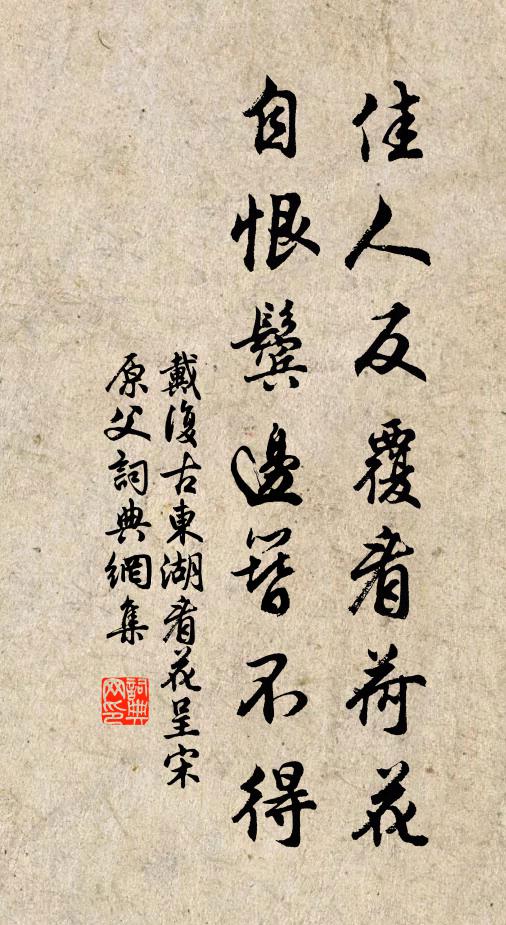 佳人反覆看荷花
自恨鬢邊簪不得
戴復古東湖看花呈宋
原父詞典網集
詞典
網印